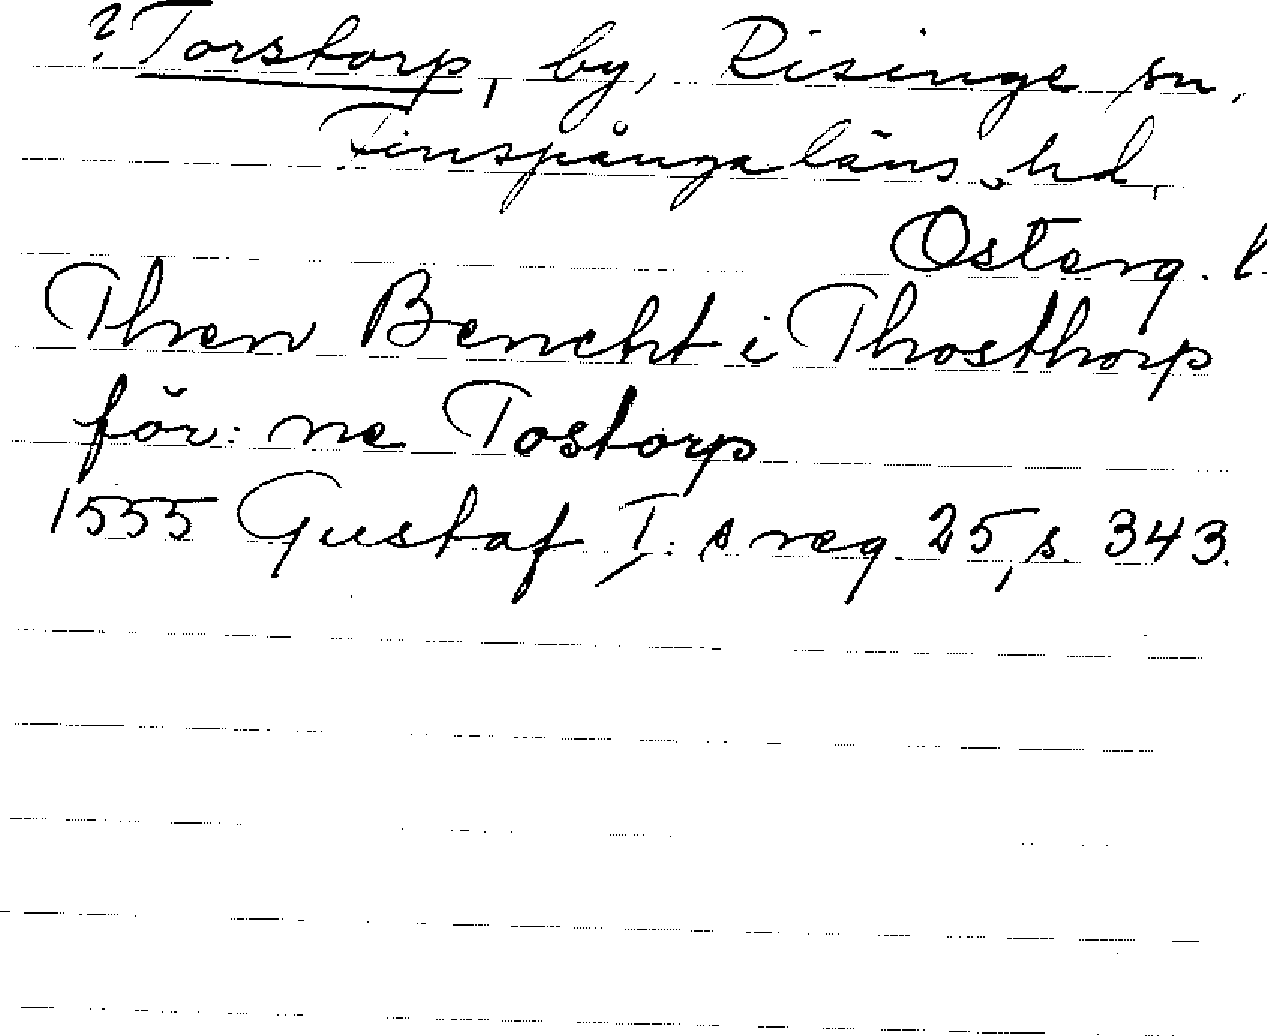 ? Torstorp, by, Risinge sn,
Finspånga läns hd,
Österg. l.
Then Bencht i Throsthorp
för: ne Tostorp
1555 Gustaf I: s reg. 25, s. 343.